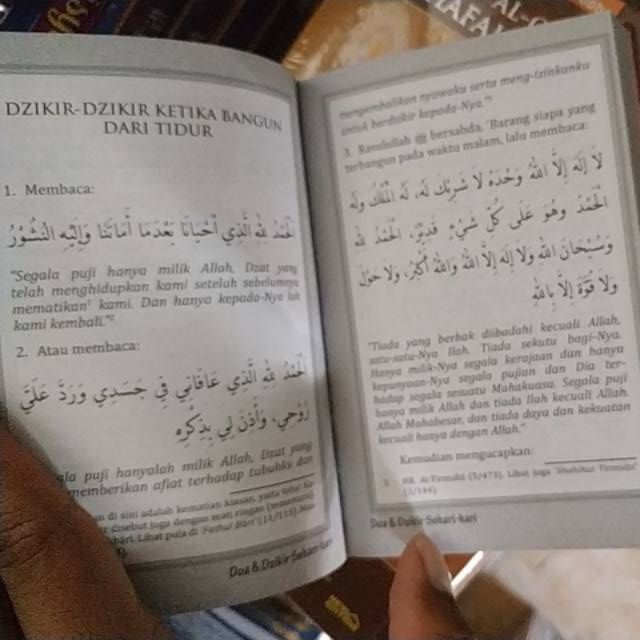 DZIKIR-DZIKIR KETIKA BANGUN
DARI TIDUR
1. Membaca:
الْحَمْدُ لِلَّهِ الَّذِي أَحْيَانَا بَعْدَمَا أَمَاتَنَا وَإِلَيْهِ النُّشُوْرُ
"Segala puji hanya milik Allah, Dzat yang
telah menghidupkan kami setelah sebelumnya
mematikan¹ kami. Dan hanya kepada-Nya lah
kami kembali."²
2. Atau membaca:
الْحَمْدُ لِلَّهِ الَّذِي عَافَانِي فِي جَسَدِي وَرَدَّ عَلَيَّ
رُوْحِي، وَأَذِنَ لِي بِذِكْرِهِ
puji hanyalah milik Allah, Dzat yang
memberikan afiat terhadap tubuhku dan
di sini adalah kematian
disebut juga dengan mati ringan
Lihat pula di Fathul Bari
Doa & Dzikir Sehari-hari
mengembalikan nyawaku serta meng-izinkanku
untuk berdzikir kepada-Nya."
3. Rasulullah ﷺ bersabda, "Barang siapa yang
terbangun pada waktu malam, lalu membaca:
لَا إِلَهَ إِلَّا اللهُ وَحْدَهُ لَا شَرِيْكَ لَهُ، لَهُ الْمُلْكُ وَلَهُ
الْحَمْدُ وَهُوَ عَلَى كُلِّ شَيْءٍ قَدِيْرٌ، الْحَمْدُ لِلَّهِ
وَسُبْحَانَ اللهِ وَلَا إِلَهَ إِلَّا اللهُ وَاللهُ أَكْبَرُ، وَلَا حَوْلَ
وَلَا قُوَّةَ إِلَّا بِاللهِ
"Tiada yang berhak diibadahi kecuali Allah,
satu-satu-Nya Ilah. Tiada sekutu bagi-Nya.
Hanya milik-Nya segala kerajaan dan hanya
kepunyaan-Nya segala pujian dan Dia ter-
hadap segala sesuatu Mahakuasa. Segala puji
hanya milik Allah dan tiada Ilah kecuali Allah.
Allah Mahabesar, dan tiada daya dan kekuatan
kecuali hanya dengan Allah."
Kemudian mengucapkan:
HR. At-Tirmidzi (5/473). Lihat juga "Shahihut Tirmidzi"
(3/144).
Doa & Dzikir Sehari-hari